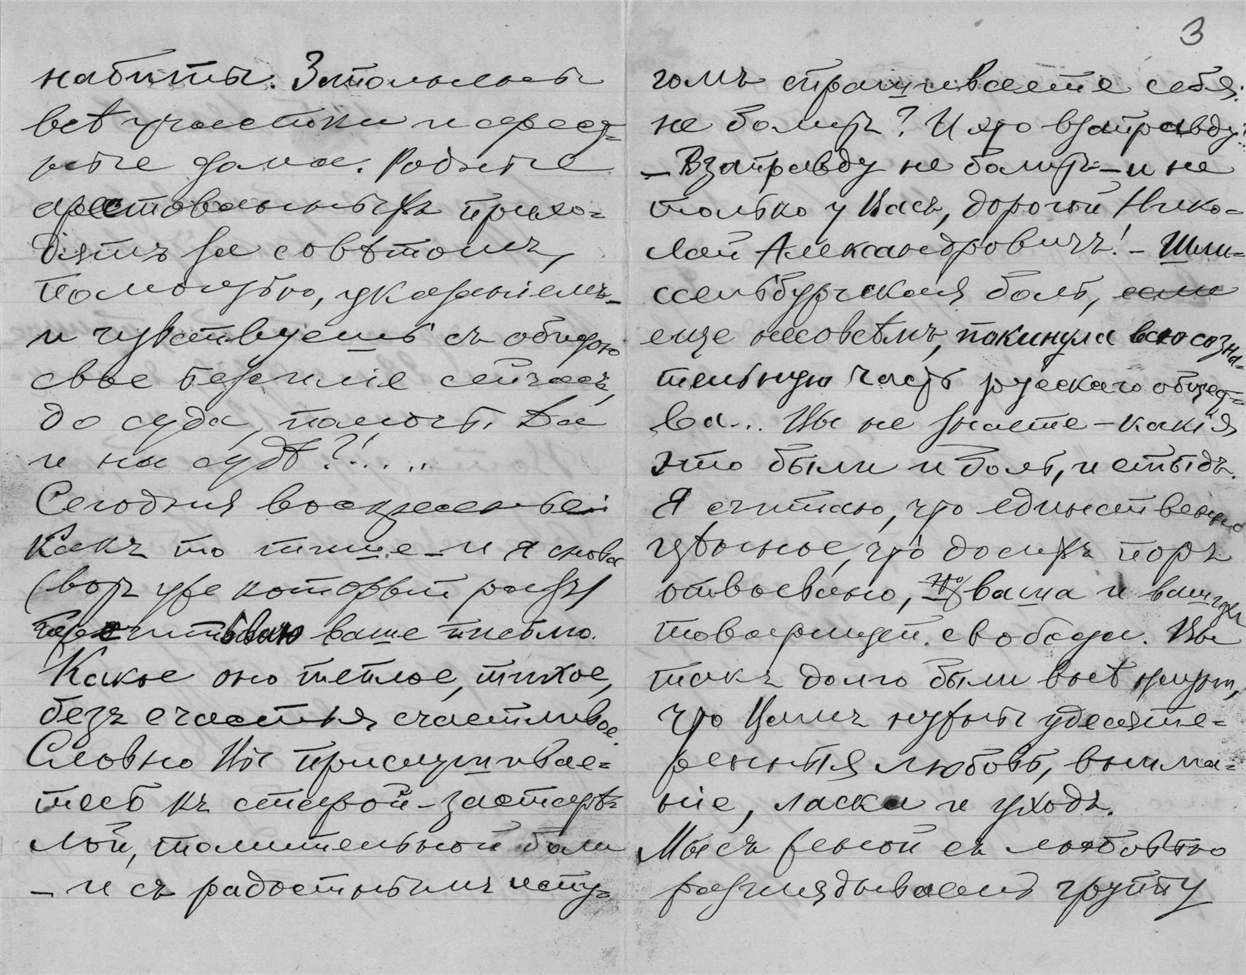 набиты. Затомлены
всѣ участки и аресд-
ные дома. Родные
арестованныхъ прихо-
дятъ за совѣтомъ,
помощью, указаніемъ
и чувствуешь съ обидою
свое безсиліе сейчасъ,
до суда, помочь. Да
и на судѣ?!.....
Сегодня воскресенье.
Какъ то тише – и я снова
(вотъ уже который разъ)
перечитываю ваше письмо.
Какое оно теплое, тихое,
безъ счастья счастливое.
Словно Вы прислушивае-
тесь къ старой – застарѣ-
лой, томительной боли
– и съ радостнымъ испу-
3
гомъ спрашиваете себя:
не болитъ? И это взаправду?
– Взаправду не болитъ – и не
только у Васъ, дорогой Нико-
лай Александровичъ! – Шли-
ссельбургская боль, если
еще несовсѣмъ, покинула всю созна-
тельную часть русскаго общест-
ва... Вы не знаете – какія
это были и боль, и стыдъ.
Я считаю, что единственно
цѣнное, что досихъ поръ
отвоевано, это ваша и вашихъ
товарищей свобода. Вы
такъ долго были внѣ жизни,
что Вамъ нужны удесяте-
ренныя любовь, внима-
ніе, ласка и уходъ.
Мы съ женой съ любовью
разглядываемъ группу